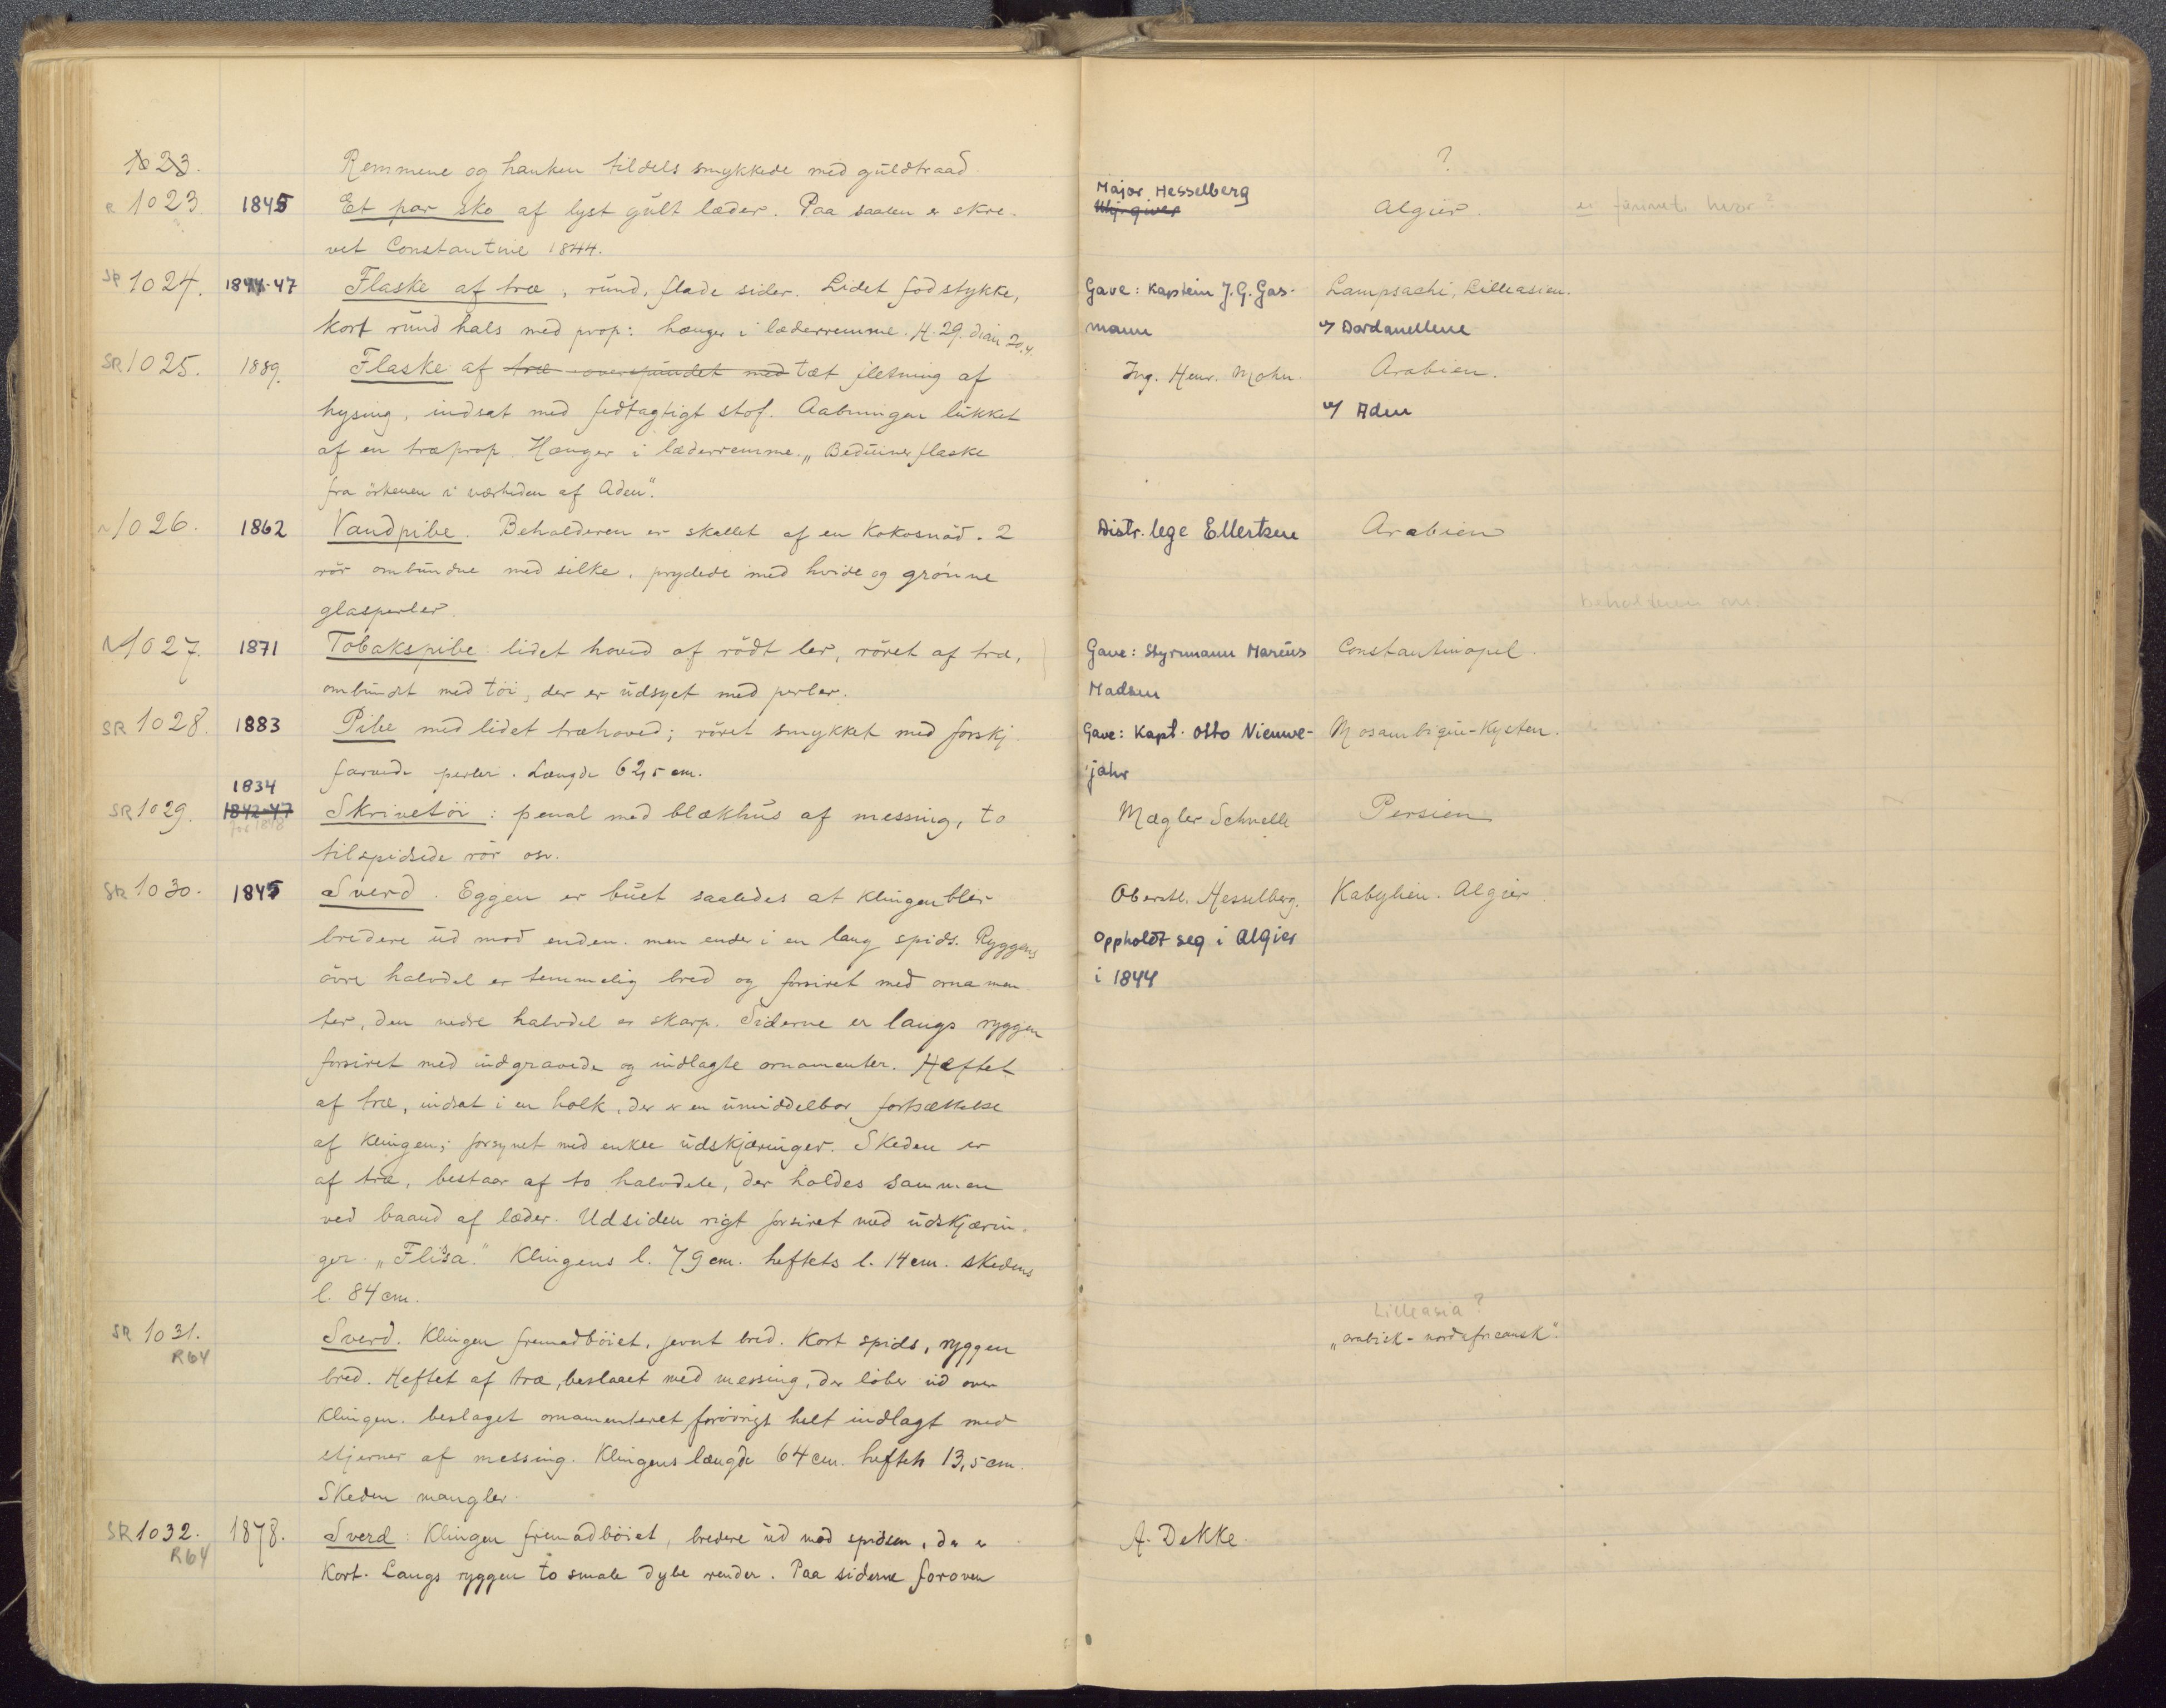 1023. Remmene og hanken tildels smykkede med guldtraad. ?
R 1023 1845 Et par sko af lyst gult læder. Paa saalen er skre- Major Hesselberg Algier. er funnet hvor?
vet Constantine 1844.
SR 1024. 1844-47 Flaske af træ, rund, flade sider. Lidet fodstykke, Gave: Kaptein J. G. Gas- Lampsachi, Lilleasien.
kort rund hals med prop: hænger i læderremme. H. 29. diam 20,4. mann v/ Dardanellene
SR 1025. 1889. Flaske af træ overspundet med tæt fletning af Ing. Henr. Mohn. Arabien.
hysing, indsat med fedtagtigt stof. Aabningen lukket v/ Aden
af en træprop. Hænger i læderremme. „Beduinerflaske
fra örkenen i nærheden af Aden“.
1026. 1862 Vandpibe. Beholderen er skallet af en Kokosnöd. 2 Distr. lege Ellertsen Arabien
rör ombundne med silke, prydede med hvide og grönne
glasperler. beholderen
1027. 1871 Tobakspibe lidet hoved af rödt ler, röret af træ, Gave: Styrmann Marius Constantinopel.
ombundet med töi, der er udsyet med perler. Madsen
SR 1028. 1883 Pibe med lidet træhoved; röret smykket med forskj. Gave: Kapt. Otto Nieuwe- Mosambique-Kysten.
farvede perler. Længde 62,5 cm. jahr
1834
SR 1029. 1842-47 Skrivetöi: penal med blækhus af messing, to Mægler Schnelle Persien
før 1848
tilspidsede rör osv.
SR 1030. 1845 Sverd. Eggen er buet saaledes at Klingen blir Oberstl. Hesselberg. Kabylien. Algier.
bredere ud mod enden. men ender i en lang spids. Ryggens Oppholdt seg i Algier
övre halvdel er temmelig bred og forsiret med ornamen- i 1844
ter, den nedre halvdel er skarp. Siderne er langs ryggen
forsiret med indgravede og indlagte ornamenter. Hæftet
af træ, indsat i en holk, der er en umiddelbar fortsættelse
af Klingen; forsynet med enkle udskjæringer. Skeden er
af træ, bestaar af to halvdele, der holdes sammen
ved baand af læder. Udsiden rigt forsiret med udskjærin-
ger. „Flisa.“ Klingens l. 79 cm. heftets l. 14 cm. skedens
l. 84 cm.
Lilleasia?
SR 1031. Sverd. Klingen fremadböiet, jevnt bred. Kort spids, ryggen „arabisk-nordafricansk“.
R64
bred. Heftet af træ, beslaaet med messing, der löber ud over
Klingen. beslaget ornamenteret forövrigt helt indlagt med
stjerner af messing. Klingens længde 64 cm. heftets 13,5 cm.
Skeden mangler.
SR 1032. 1878. Sverd: Klingen fremadböiet, bredere ud mod spidsen, der er A. Dekke.
R64
Kort. Langs ryggen to smale dybe render. Paa siderne foroven